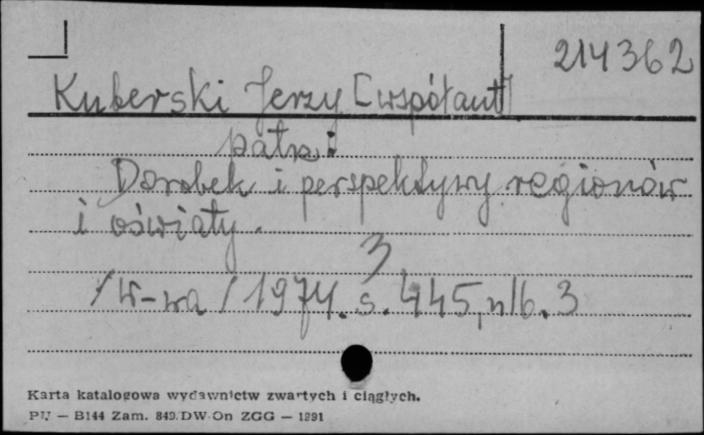 214362
Kuberski Jerzy [współaut]
patrz:
Dorobek i perspektywy regionów
i oświaty.
3
/W-wa/ 1974. s. 445, nlb. 3
Karta katalogowa wydawnictw zwartych i ciągłych.
PU — B144 Zam. 849.DW-On ZGG — 1991